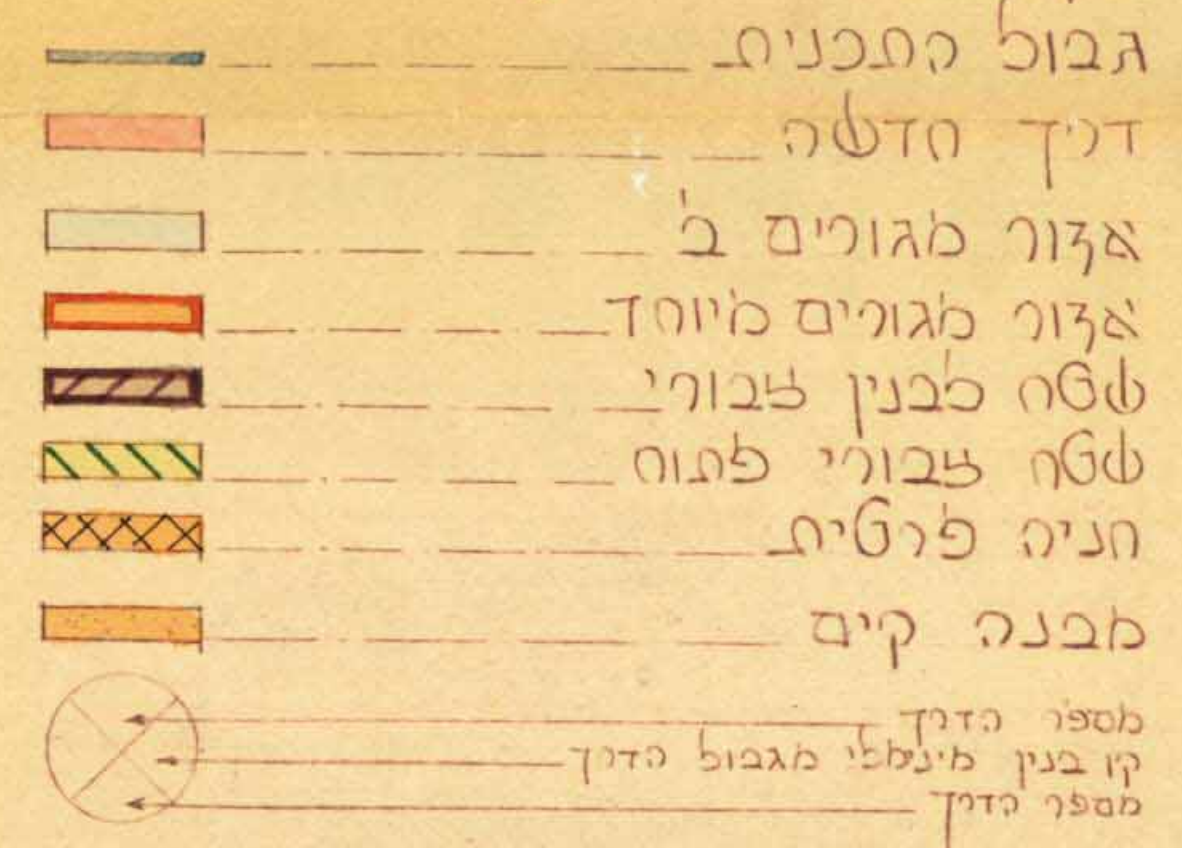 גבול התכנית
דרך חדשה
אזור מגורים ב'
אזור מגורים מיוחד
שטח לבנין צבורי
שטח צבורי פתוח
חניה פרטית
מבנה קים
מספר הדרך
קו בנין מינימלי מגבול הדרך
מספר הדרך